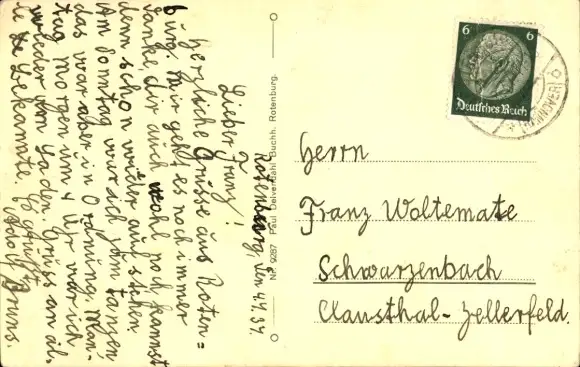 Rotenburg, den 4.4.37.
Lieber Franz!
Herzliche Grüsse aus Roten=
burg. Mir geht es noch immer
danke dir auch wohl noch kannst
denn schon wieder aufstehen.
Am Sonntag war ich zum tanzen
das war aber in Ordnung. Mon-
tag morgen um 4 Uhr war ich
wieder im Laden. Gruss an al-
le Bekannte. Es grüßt
Adolf Bruns.
Nr. 9287 Paul Delverdahl Buchh. Rotenburg.
6 6
Deutsches Reich
(HANNOVER)
Herrn
Franz Woltemate
Schwarzenbach
Clausthal-Zellerfeld.